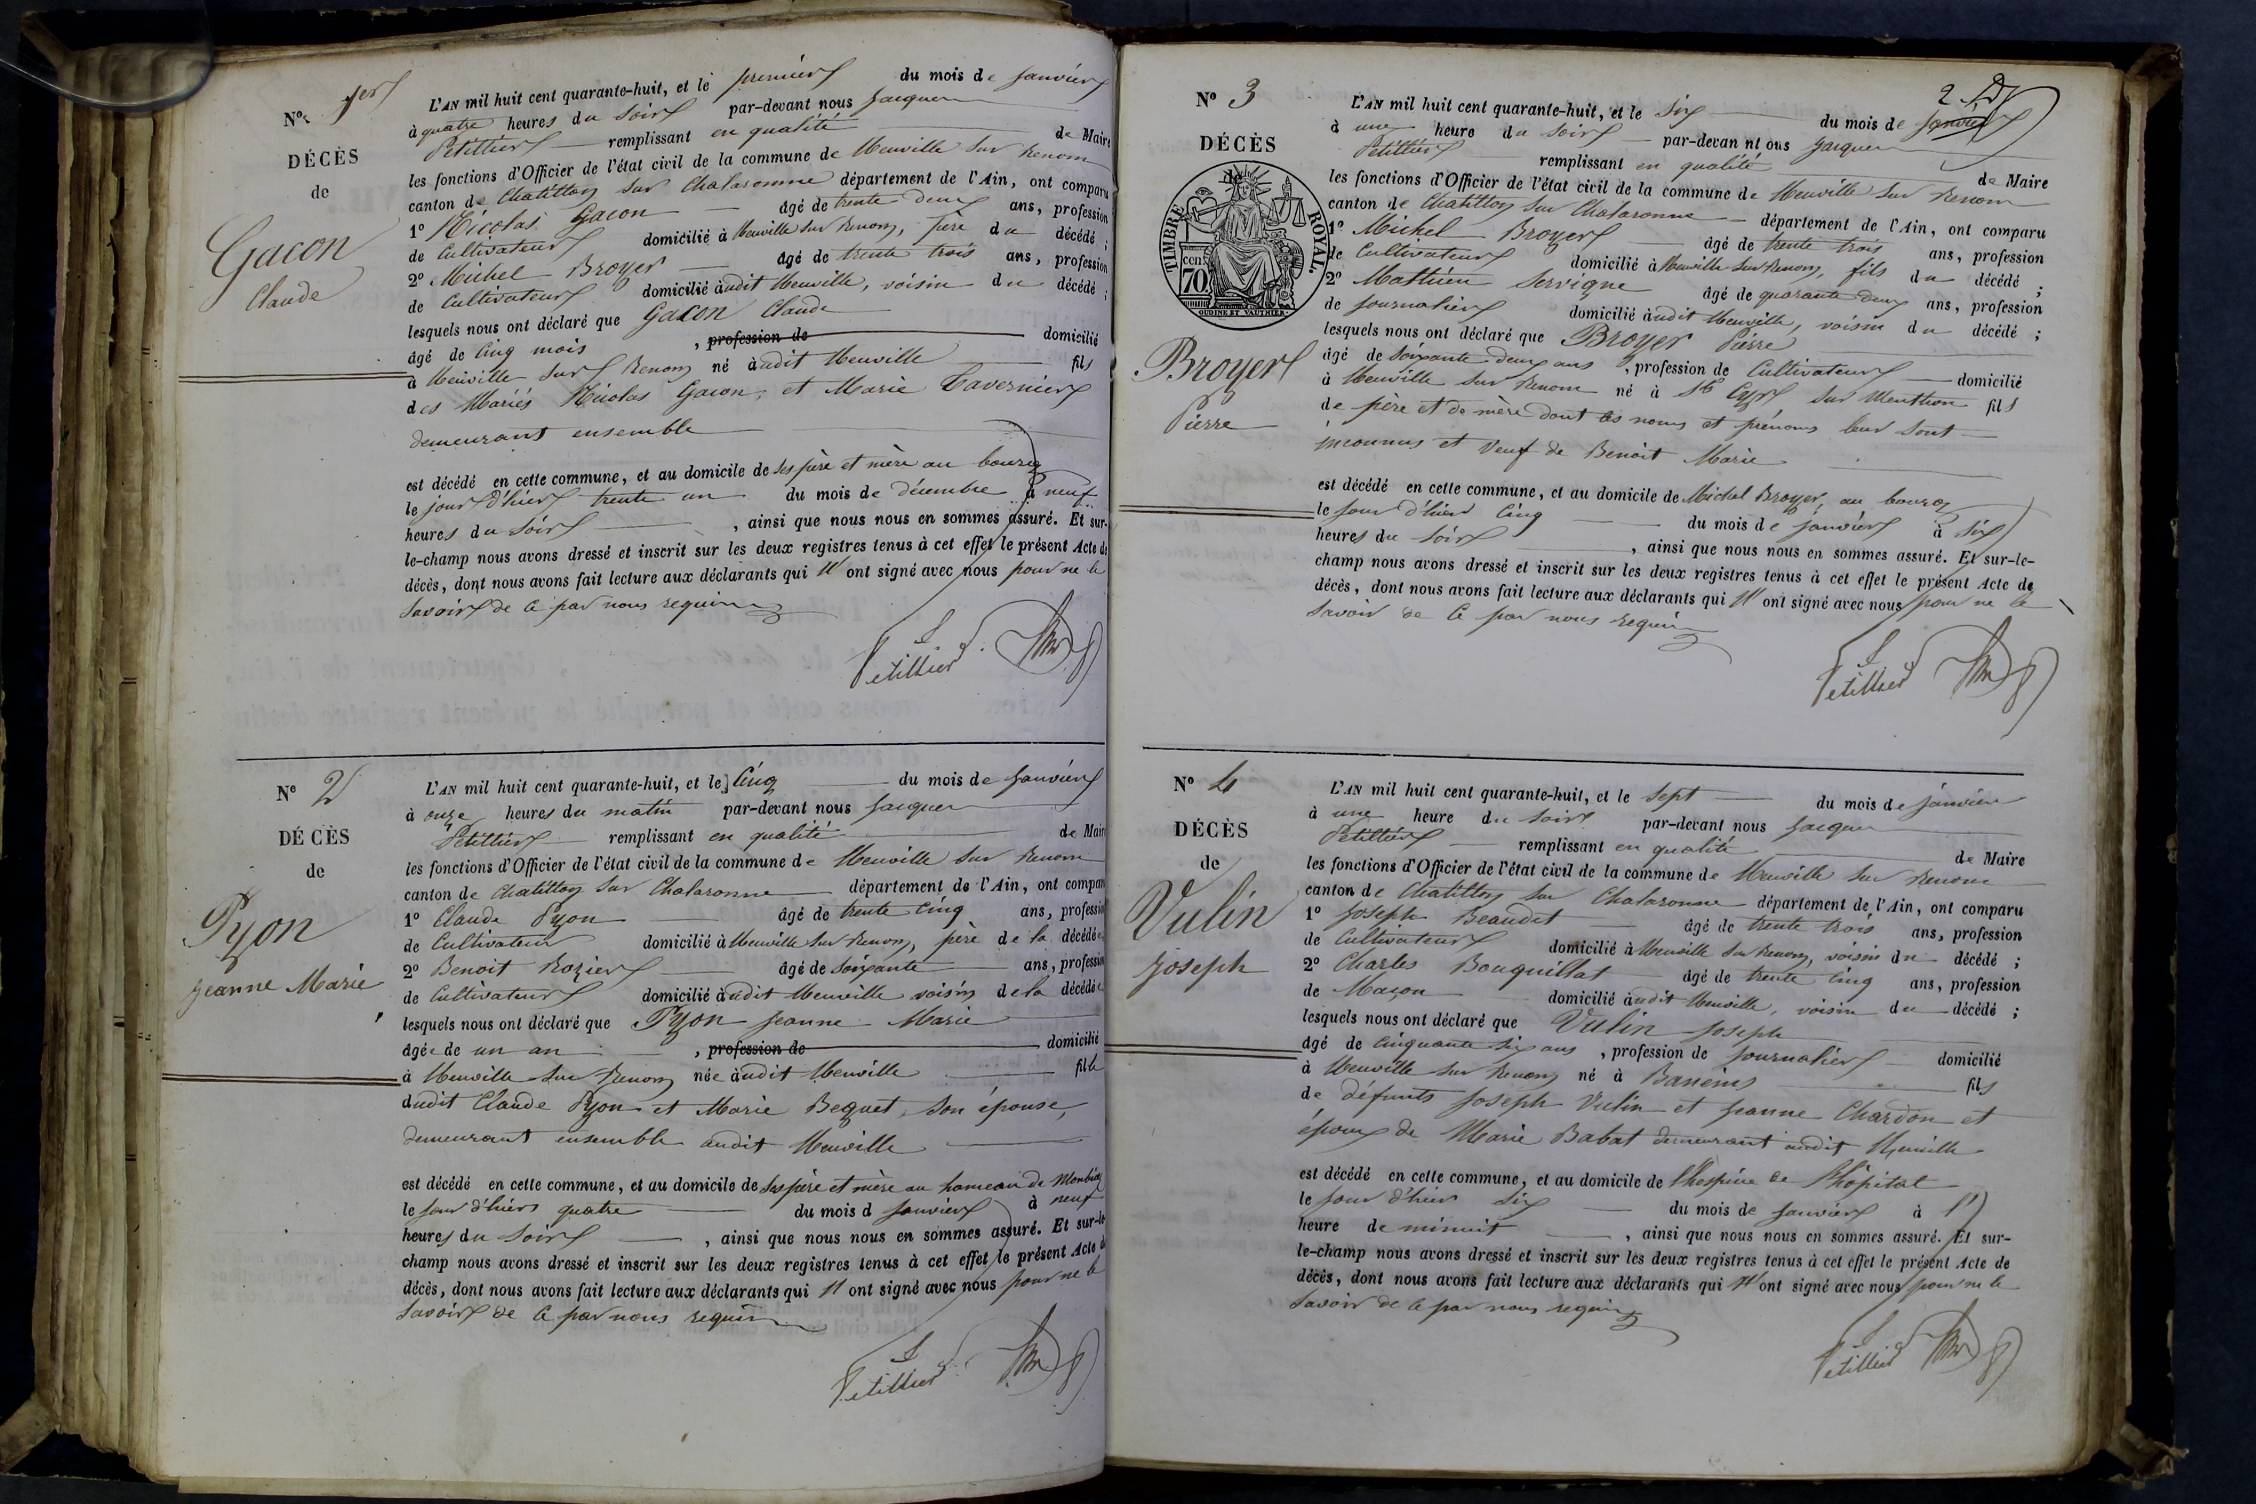 N° 1er
DÉCÈS
de
Gacon
Claude
L'AN mil huit cent quarante-huit, et le premier du mois de janvier
à quatre heures du soir par-devant nous Jacques
Petillier remplissant en qualité de Maire
les fonctions d'Officier de l'état civil de la commune de Neuville sur Renom
canton de Chatillon sur Chalaronne département de l'Ain, ont comparu
1° Nicolas Gacon âgé de trente deux ans, profession
de Cultivateur domicilié à Neuville sur Renom, père du décédé ;
2° Michel Broyer âgé de trente trois ans, profession
de Cultivateur domicilié audit Neuville, voisin du décédé ;
lesquels nous ont déclaré que Gacon Claude
âgé de Cinq mois , profession de domicilié
à Neuville sur Renom né audit Neuville fils
des Mariés Nicolas Gacon, et Marie Tavernier
demeurant ensemble
est décédé en cette commune, et au domicile de ses père et mère au bourg
le jour d'hier trente un du mois de décembre à neuf
heures du soir , ainsi que nous nous en sommes assuré. Et sur-
le-champ nous avons dressé et inscrit sur les deux registres tenus à cet effet le présent Acte de
décès, dont nous avons fait lecture aux déclarants qui n' ont signé avec nous pour ne le
savoir de ce par nous requis
Petillier
N° 2
DÉCÈS
de
Pyon
Jeanne Marie
L'AN mil huit cent quarante-huit, et le Cinq du mois de janvier
à onze heures du matin par-devant nous Jacques
Petillier remplissant en qualité de Maire
les fonctions d'Officier de l'état civil de la commune de Neuville sur Renom
canton de Chatillon sur Chalaronne département de l'Ain, ont comparu
1° Claude Pyon âgé de trente cinq ans, profession
de Cultivateur domicilié à Neuville sur Renom, père de la décédée
2° Benoit Rozier âgé de soixante ans, profession
de Cultivateur domicilié audit Neuville voisin de la décédée
lesquels nous ont déclaré que Pyon Jeanne Marie
âgée de un an , profession de domicilié
à Neuville sur Renom née audit Neuville fille
dudit Claude Pyon et Marie Bequet, son épouse,
demeurant ensemble audit Neuville
est décédé en cette commune, et au domicile de ses père et mère au hameau de
le jour d'hier quatre du mois d janvier à neuf
heures du soir , ainsi que nous nous en sommes assuré. Et sur-le-
champ nous avons dressé et inscrit sur les deux registres tenus à cet effet le présent Acte de
décès, dont nous avons fait lecture aux déclarants qui n' ont signé avec nous pour ne le
savoir de ce par nous requis
Petillier
2
N° 3
DÉCÈS
de
TIMBRE ROYAL.
CEN
70.
OUDINÉ ET VAUTHIER.
Broyer
Pierre
L'AN mil huit cent quarante-huit, et le six du mois de janvier
à une heure du soir par-devan nt ous Jacques
Petillier remplissant en qualité de Maire
les fonctions d'Officier de l'état civil de la commune de Neuville sur Renom
canton de Chatillon sur Chalaronne département de l'Ain, ont comparu
1° Michel Broyer âgé de trente trois ans, profession
de Cultivateur domicilié à Neuville sur Renom, fils du décédé ;
2° Mathieu Servigne âgé de quarante deux ans, profession
de journalier domicilié audit Neuville, voisin du décédé ;
lesquels nous ont déclaré que Broyer Pierre
âgé de soixante deux ans , profession de Cultivateur domicilié
à Neuville sur Renom né à St Cyr sur Menthon fils
de père et de mère dont les noms et prénoms leur sont
inconnus et Veuf de Benoit Marie
est décédé en cette commune, et au domicile de Michel Broyer, au bourg
le jour d'hier Cinq du mois de janvier à six
heures du soir , ainsi que nous nous en sommes assuré. Et sur-le-
champ nous avons dressé et inscrit sur les deux registres tenus à cet effet le présent Acte de
décès, dont nous avons fait lecture aux déclarants qui n' ont signé avec nous pour ne le
savoir de ce par nous requis
Petillier
N° 4
DÉCÈS
de
Vulin
Joseph
L'AN mil huit cent quarante-huit, et le sept du mois de janvier
à une heure du soir par-devant nous Jacques
Petillier remplissant en qualité de Maire
les fonctions d'Officier de l'état civil de la commune de Neuville sur Renom
canton de Chatillon sur Chalaronne département de l'Ain, ont comparu
1° Joseph Beaudet âgé de trente trois ans, profession
de Cultivateur domicilié à Neuville sur Renom, voisin du décédé ;
2° Charles Bouquillat âgé de trente cinq ans, profession
de Maçon domicilié audit Neuville, voisin du décédé ;
lesquels nous ont déclaré que Vulin Joseph
âgé de Cinquante six ans , profession de journalier domicilié
à Neuville sur Renom né à Baneins fils
de défunts Joseph Vulin et Jeanne Chardon et
époux de Marie Babat demeurant audit Neuville
est décédé en cette commune, et au domicile de l'hospice de l'hôpital
le jour d'hier six du mois de janvier à l'
heure de minuit , ainsi que nous nous en sommes assuré. Et sur-
le-champ nous avons dressé et inscrit sur les deux registres tenus à cet effet le présent Acte de
décès, dont nous avons fait lecture aux déclarants qui n' ont signé avec nous pour ne le
savoir de ce par nous requis
Petillier